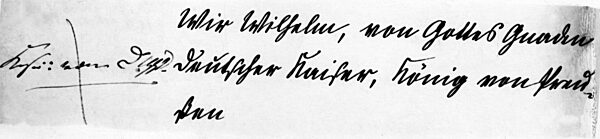 Wir Wilhelm, von Gottes Gnaden
Deutscher Kaiser, König von Preu-
ßen